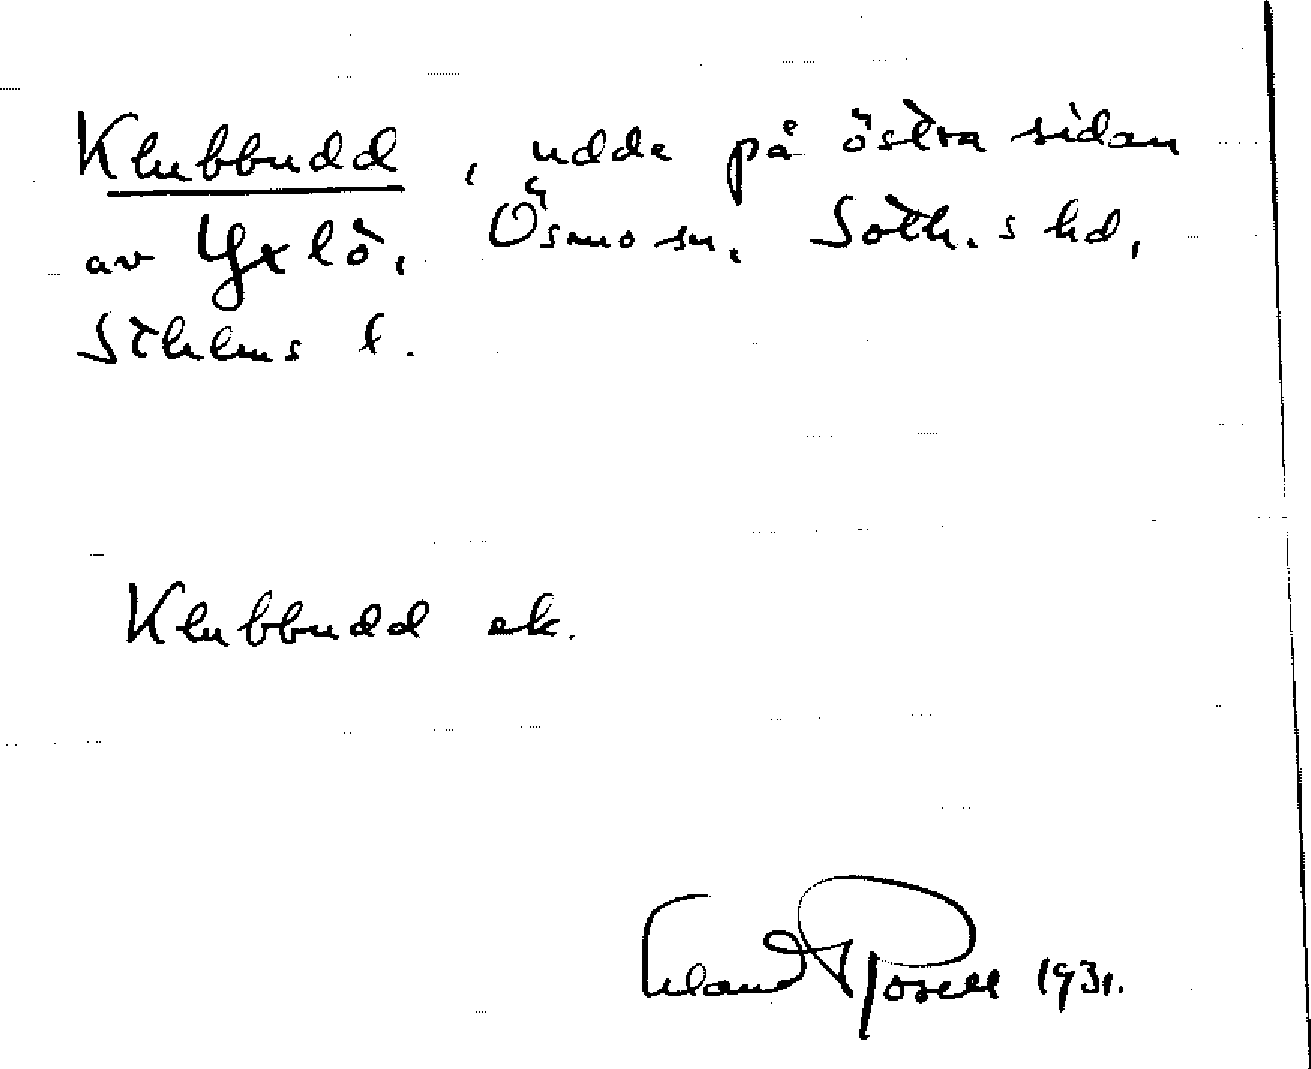 Klubbudd, udde på östra sidan
av Yxlö, Ösmo sn, Soth.s hd,
Sthlms l.
Klubbudd ek.
Erland Rosell 1931.